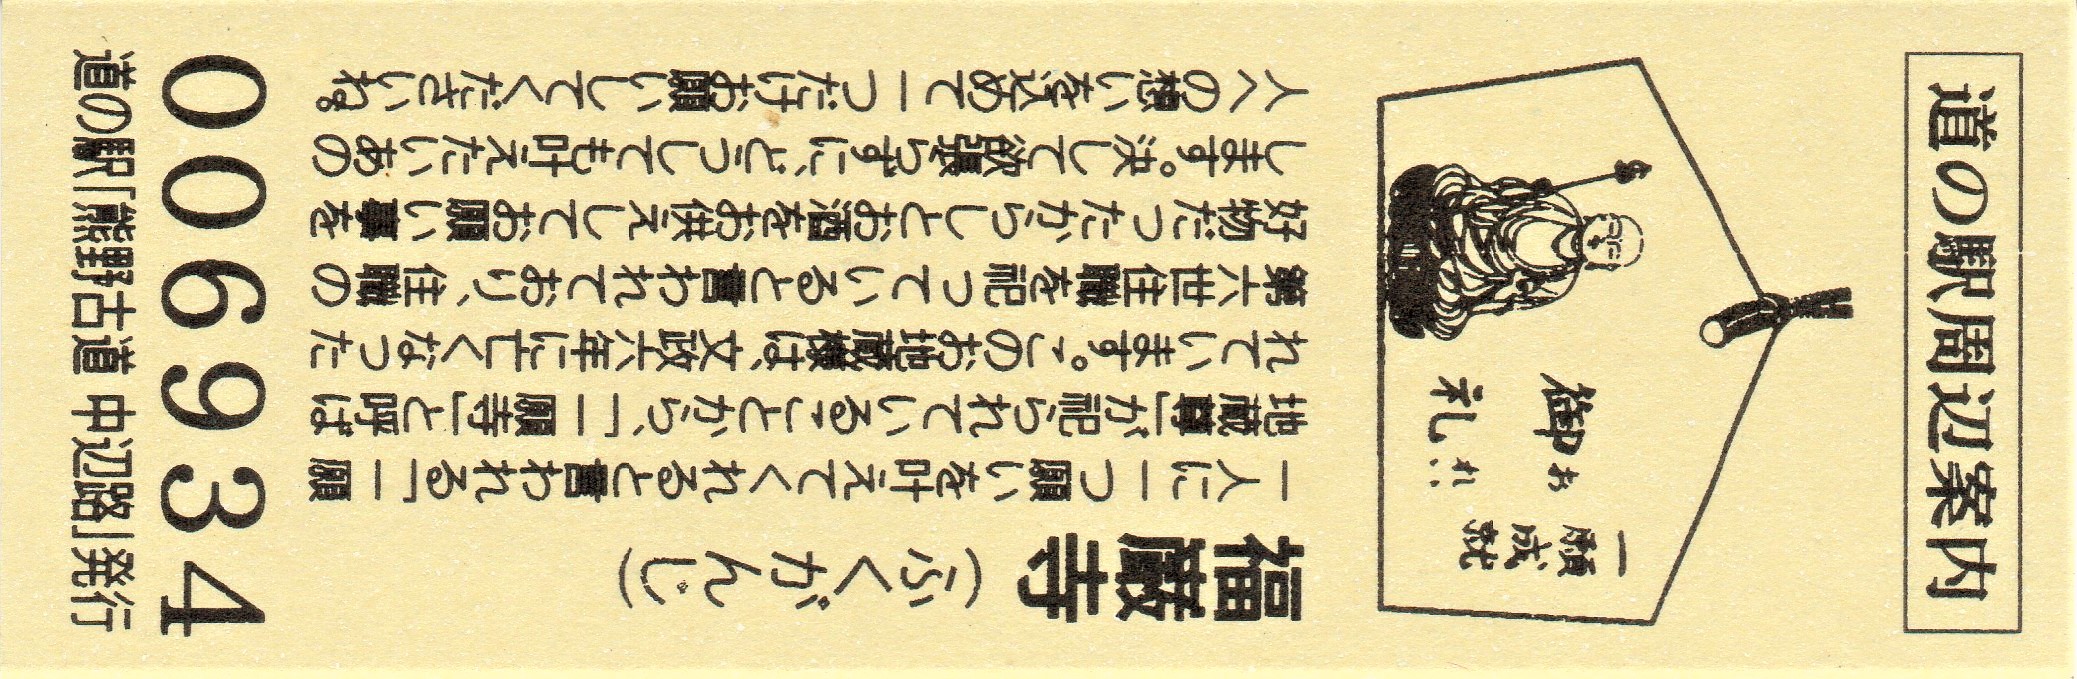 道の駅周辺案内
一願成就
御お
礼れい
福巌寺（ふくがんじ）
一人に一つ願いを叶えてくれると言われる「一願
地蔵尊」が祀られていることから、「一願寺」と呼ば
れています。このお地蔵様は、文政六年に亡くなった
第六世住職を祀っていると言われており、住職の
好物だったからしとお酒をお供えしてお願い事を
します。決して欲張らずに、どうしても叶えたいあの
人への想いを込めて一つだけお願いしてくださいね。
006934
道の駅「熊野古道 中辺路」発行